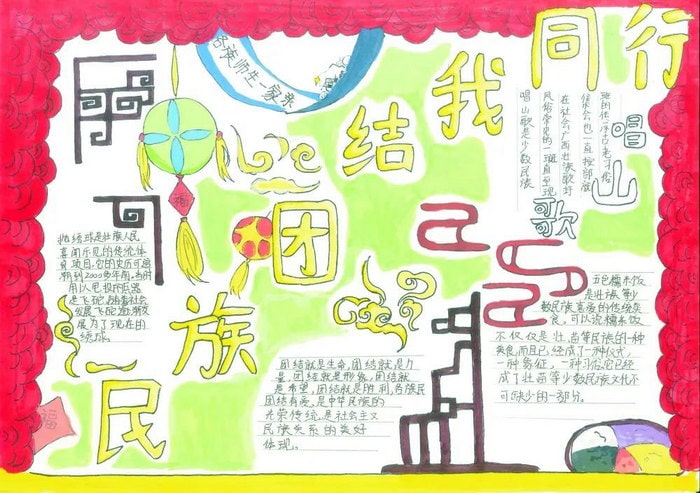 民族团结我同行
各族师生一家亲
唱山歌
唱山歌是少数民族
在社会广西壮族歌圩
绣球是壮族人民
喜闻乐见的传统体
育项目,它的史历可追
溯到2000多年前,当时
用以甩投的兵器
是飞砣,随着社会
发展飞砣逐渐发
展为了现在的
绣球。
福
福
团结就是生命,团结就是力
量,团结就是形象,团结就
是希望,团结就是胜利,各族民
团结有爱,是中华民族的
光荣传统,是社会主义
民族关系的美好
体现。
五色糯米饭
是壮族等少
数民族喜爱的传统美
食,可以说糯米饭
不仅仅是壮、苗等民族的一种
美食,而且已经成了一种仪式,
一种象征,一种习俗,它已经
成了壮苗等少数民族文化不
可缺少的一部分。